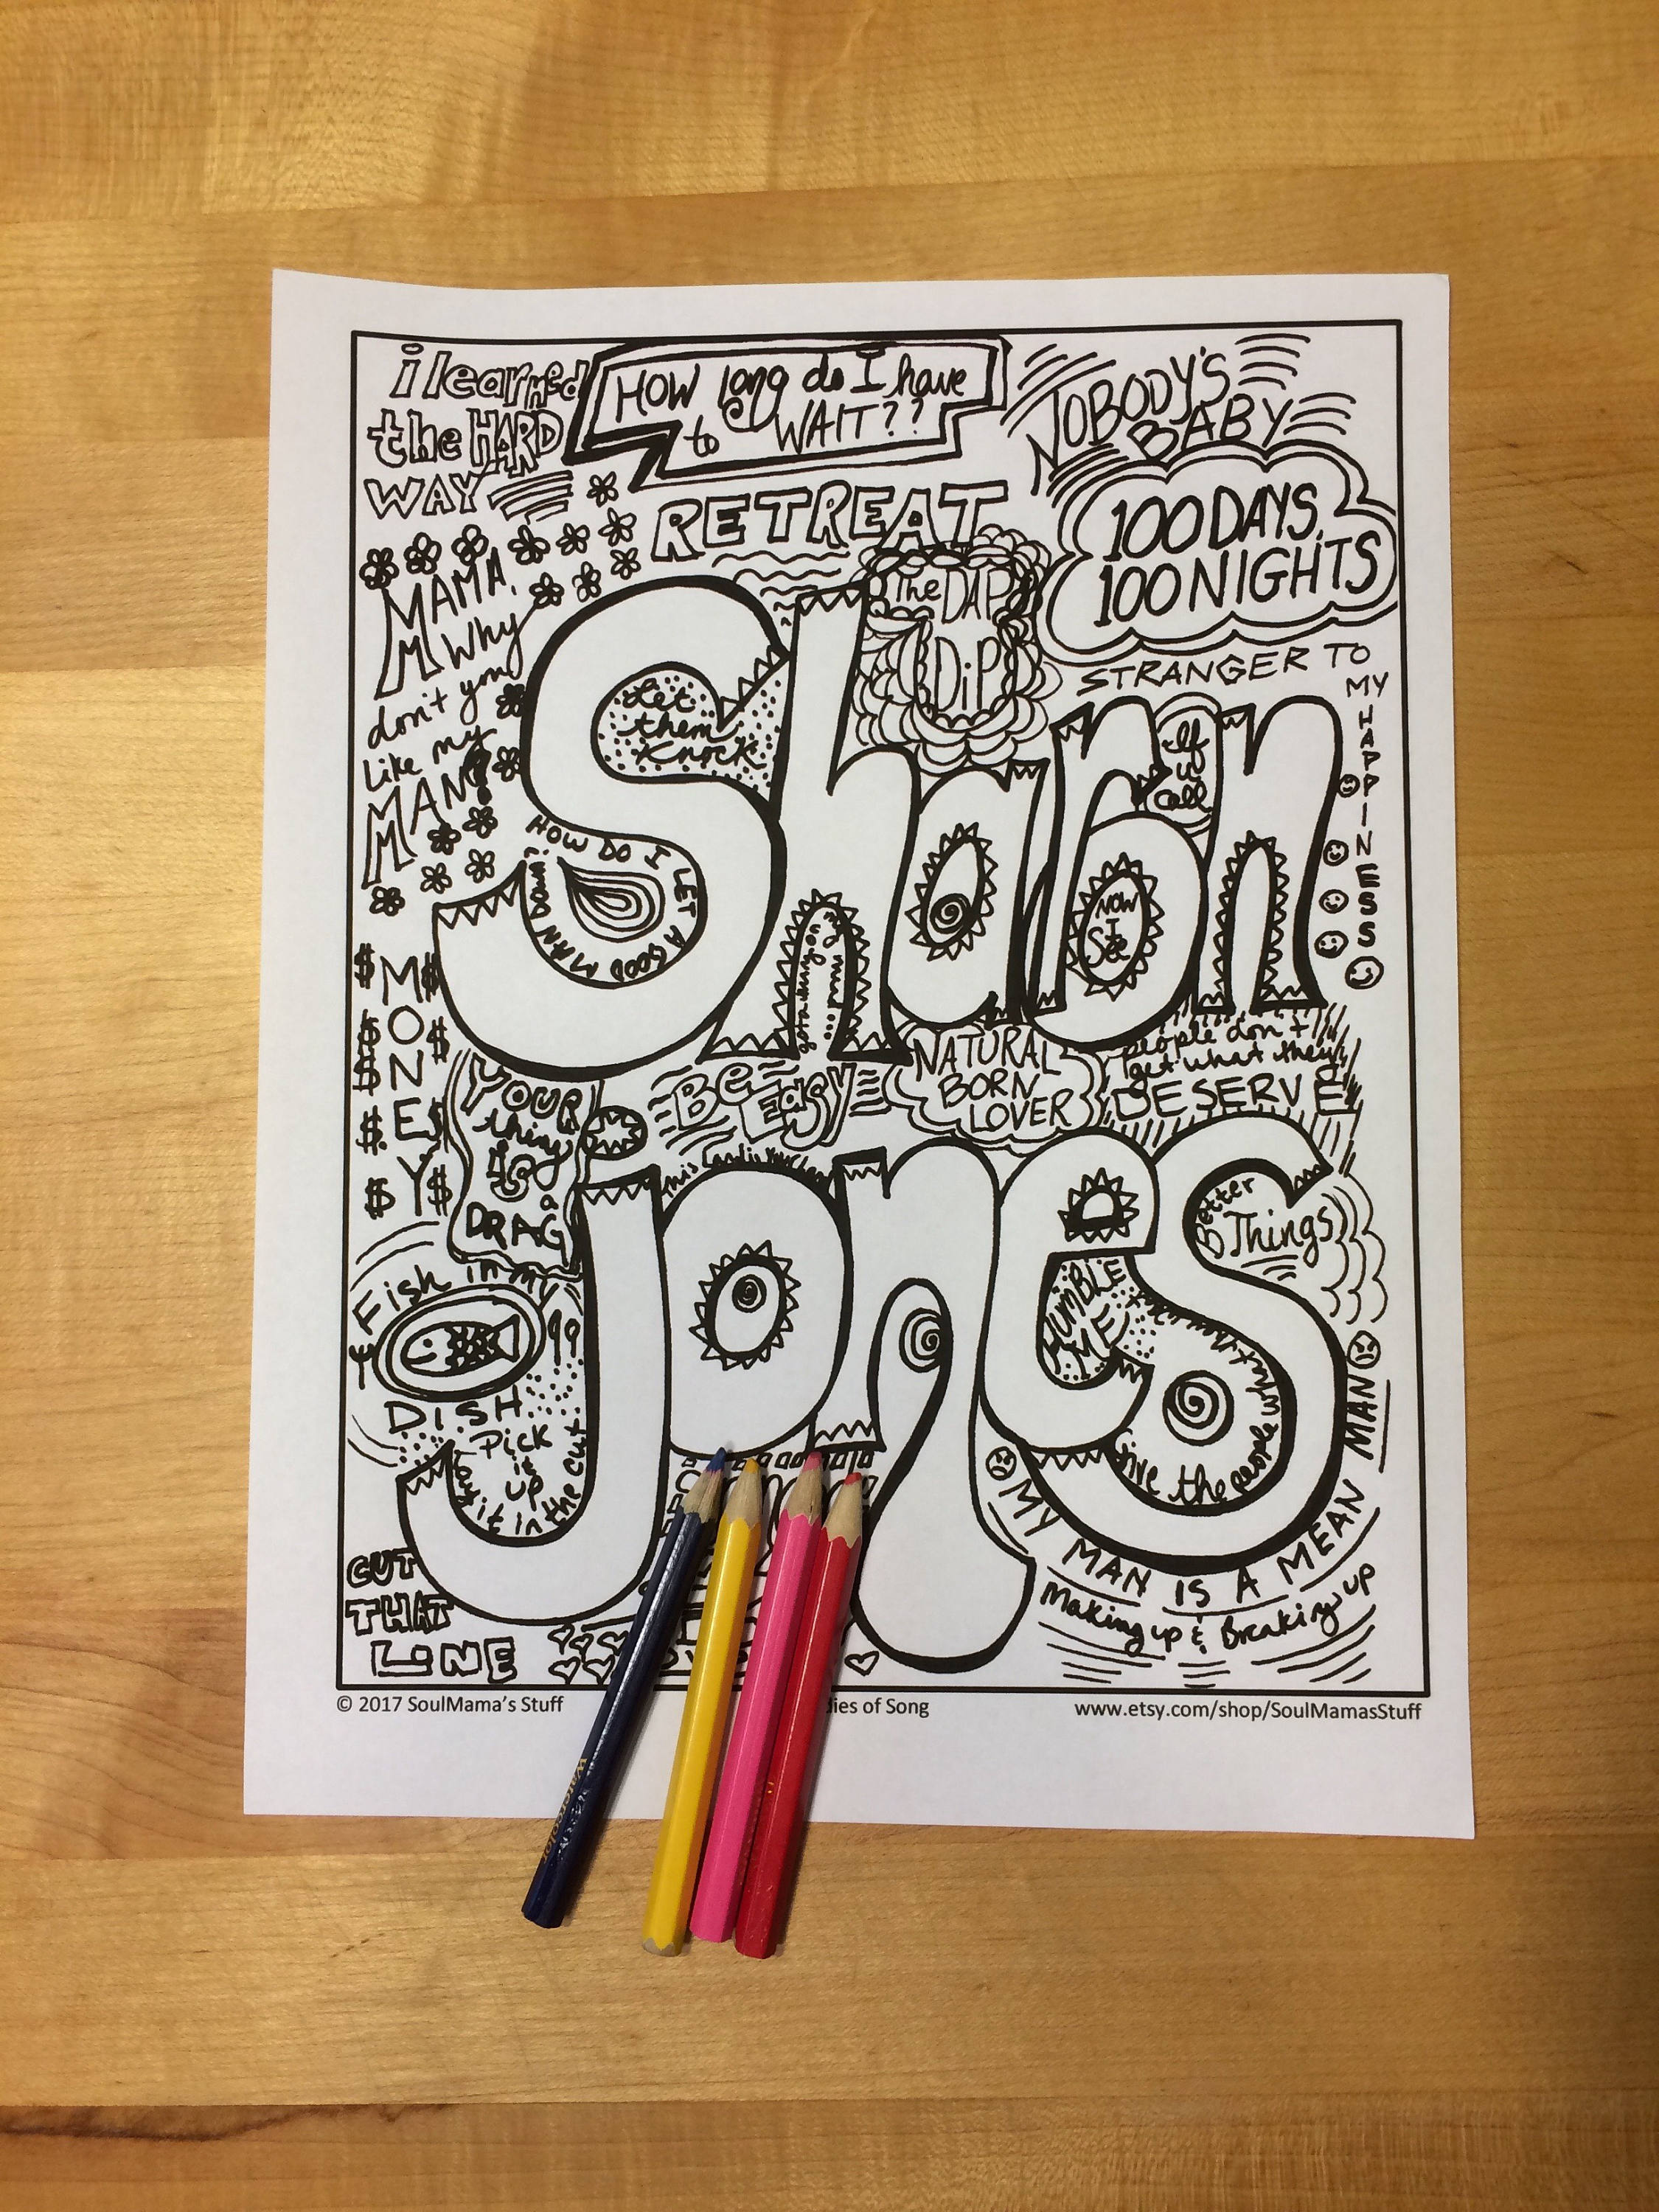 i learned
the HARD
WAY
HOW long do I have
to WAIT??
NOBODY'S
BABY
RETREAT
100 DAYS,
100 NIGHTS
The DAP
DiP
STRANGER TO
MY
HAPPINESS
MAMA,
Why
don't you
like my
MAN?
Let
them
Knock
If
u
call
Sharon
HOW DO I LET A GOOD MAN DOWN
NOW
I
See
$MONEY$
YOUR
thing
is
a
DRAG
BE EASY
NATURAL
BORN
LOVER
people don't
get what they
DESERVE
Jones
Better
Things
HUMBLE
ME
Fish in my
DISH
Pick
it
up
lay it in the cut
Give the people
MY MAN IS A MEAN MAN
Making up & Breaking up
CUT
THAT
LINE
© 2017 SoulMama's Stuff
of Song
www.etsy.com/shop/SoulMamasStuff
Watercolor